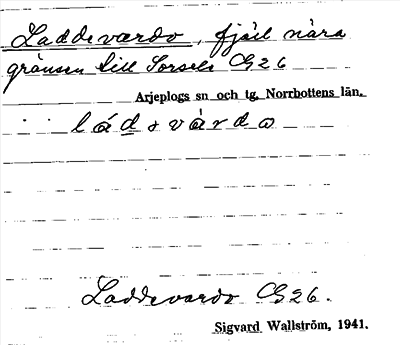 Laddevardo, fjäll nära
gränsen till Sorsele G26
Arjeplogs sn och tg, Norrbottens län.
Laddevardo G26.
Sigvard Wallström, 1941.